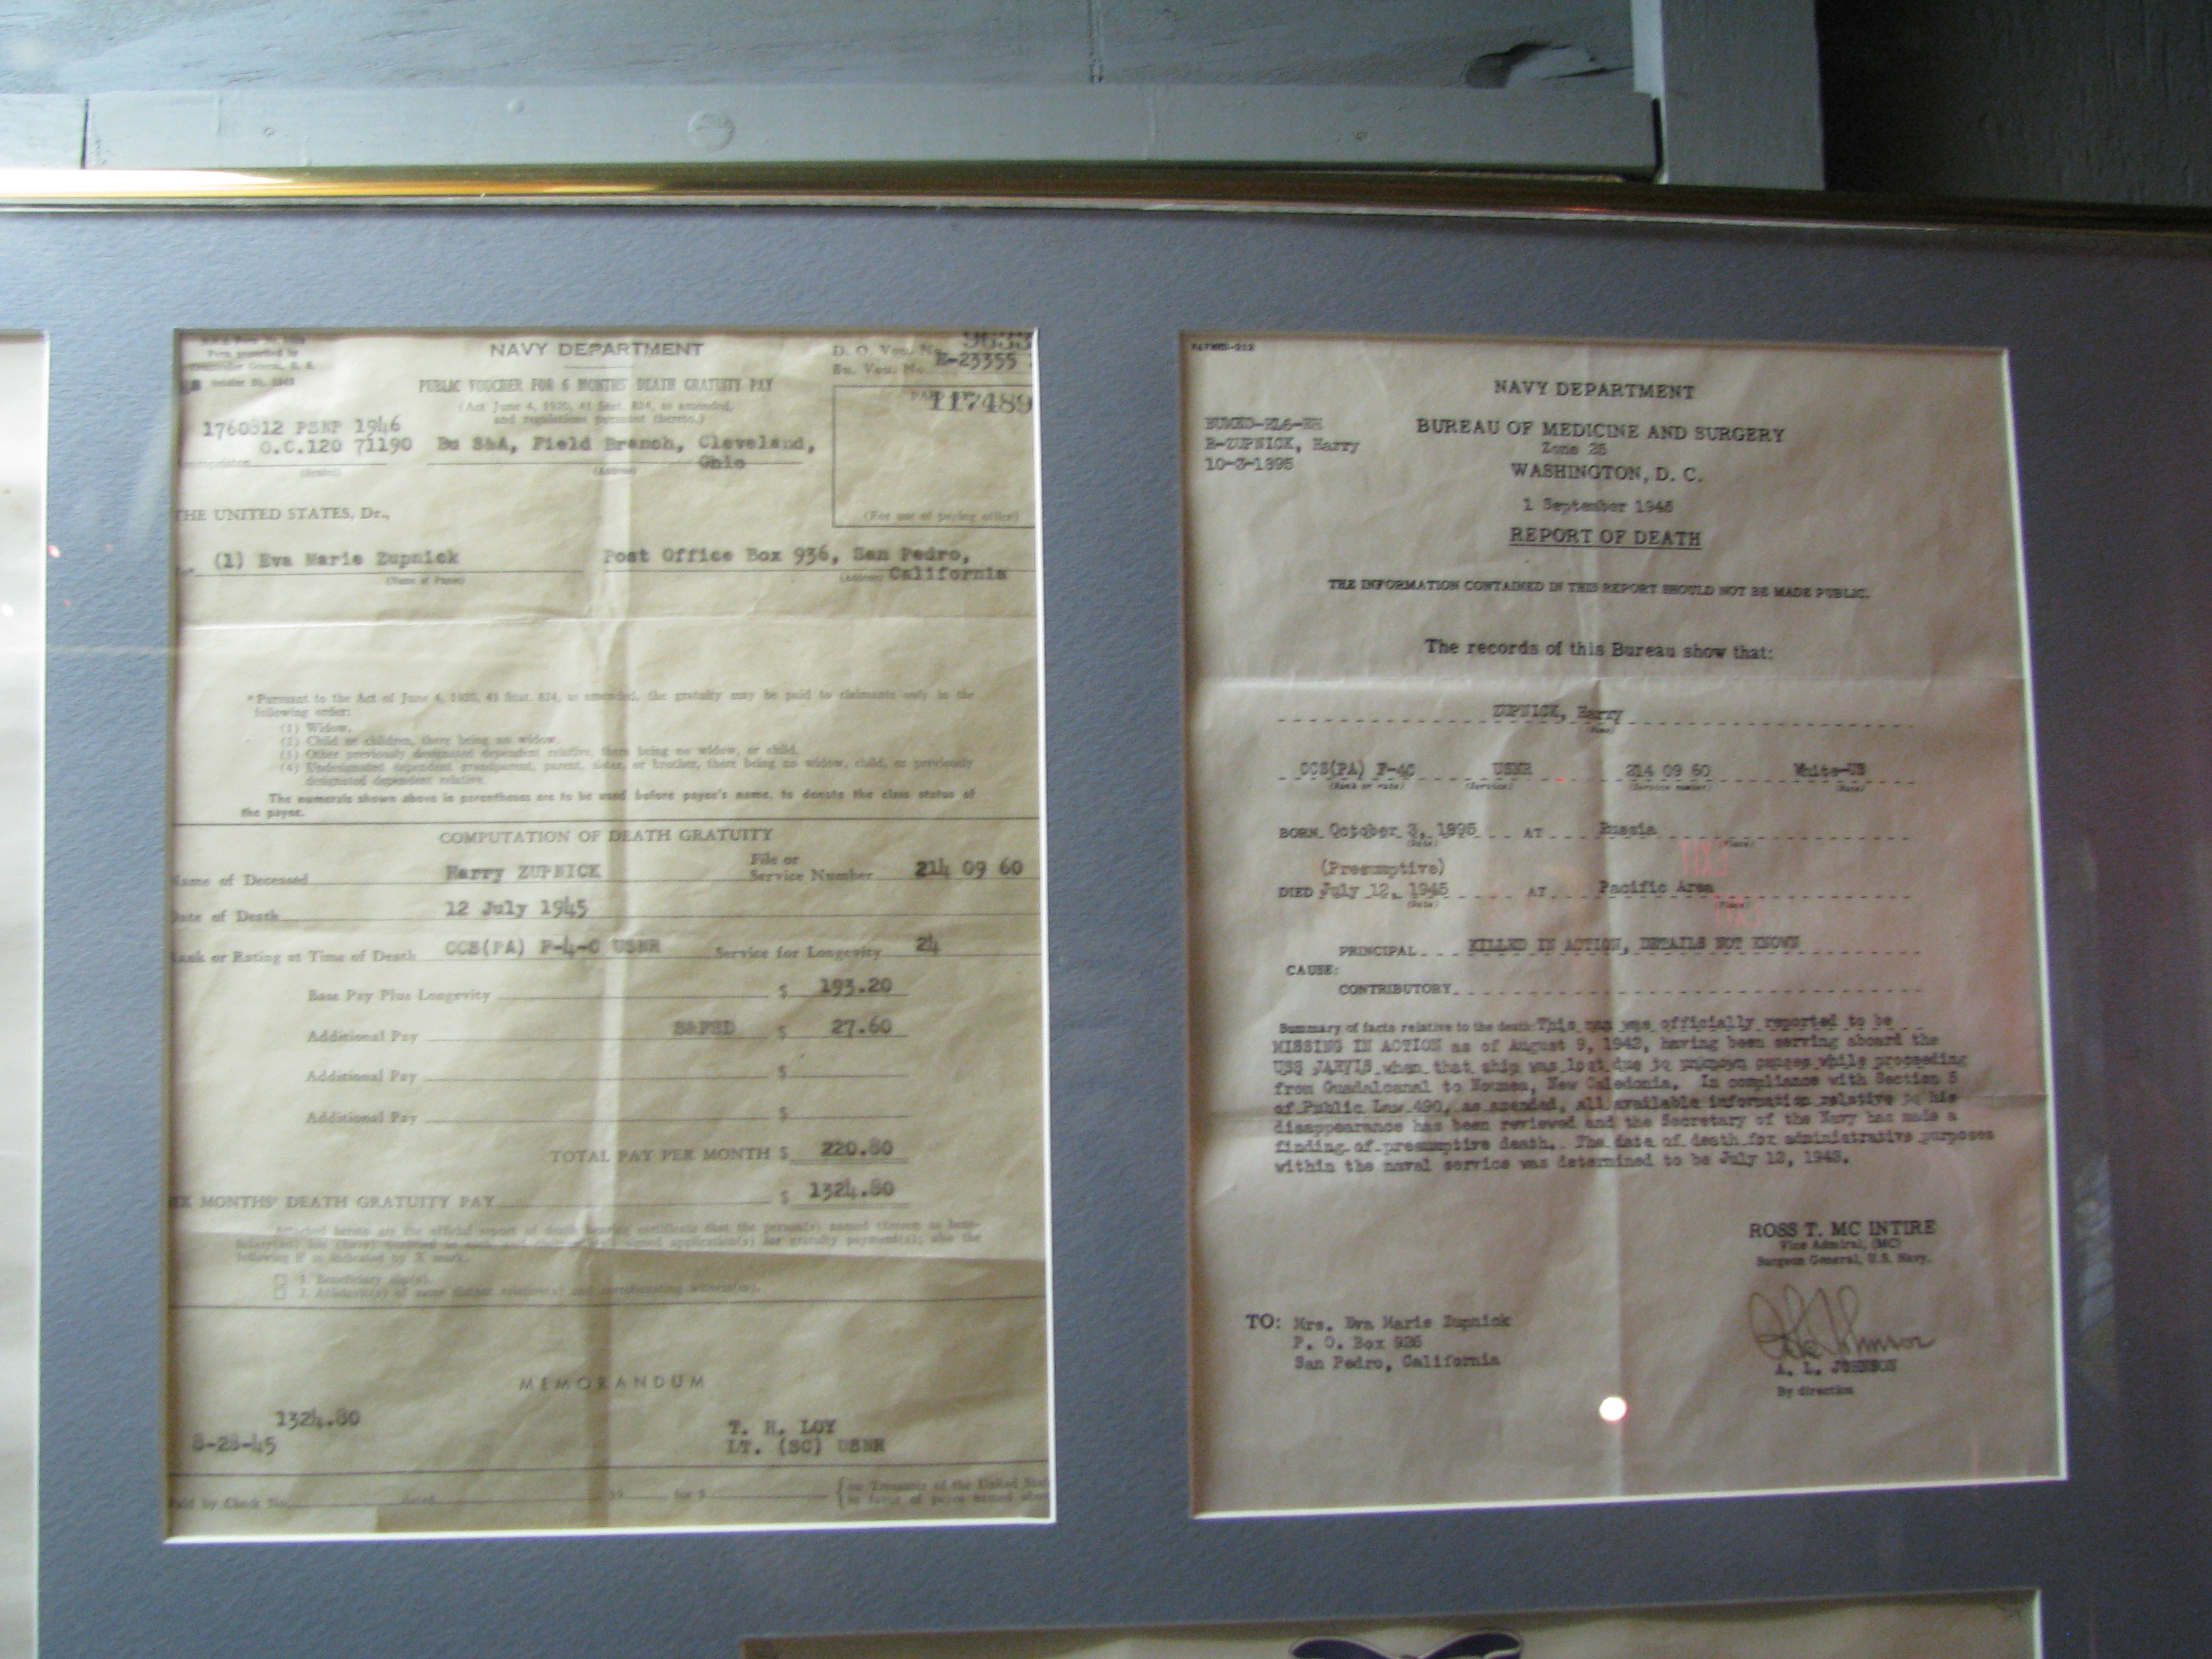 NAVY DEPARTMENT
PUBLIC VOUCHER FOR 6 MONTHS' DEATH GRATUITY PAY
(Act June 4, 1920, 41 Stat. 824, as amended,
and regulations pursuant thereto.)
D. O. Vou. No. 9633
Bu. Vou. No. E-23355
117489
October 20, 1943
1760812 PSNP 1946
O.C.120 71190 Bu S&A, Field Branch, Cleveland,
Ohio
(Symbol) (Address)
(For use of paying office)
THE UNITED STATES, Dr.,
(1) Eva Marie Zupnick Post Office Box 936, San Pedro,
(Name of Payee) (Address) California
* Pursuant to the Act of June 4, 1920, 41 Stat. 824, as amended, the gratuity may be paid to claimants only in the
following order:
(1) Widow.
(2) Child or children, there being no widow.
(3) Other previously designated dependent relative, there being no widow, or child.
(4) Undesignated dependent grandparent, parent, sister, or brother, there being no widow, child, or previously
designated dependent relative.
The numerals shown above in parentheses are to be used before payee's name, to denote the class status of
the payee.
COMPUTATION OF DEATH GRATUITY
Name of Deceased Harry ZUPNICK File or
Service Number 214 09 60
Date of Death 12 July 1945
Rank or Rating at Time of Death CCS(PA) F-4-C USNR Service for Longevity 24
Base Pay Plus Longevity $ 193.20
Additional Pay S&FED $ 27.60
Additional Pay $
Additional Pay $
TOTAL PAY PER MONTH $ 220.80
SIX MONTHS' DEATH GRATUITY PAY $ 1324.80
following if so indicated by X mark.
1. Beneficiary slip(s).
MEMORANDUM
1324.80
8-28-45
T. H. LOY
LT. (SC) USNR
Paid by Check No. dated 19 for $ on Treasurer of the United Stat
in favor of payee named above
NAVMED-212
NAVY DEPARTMENT
BUREAU OF MEDICINE AND SURGERY
Zone 25
WASHINGTON, D. C.
BUMED-RL6-EH
R-ZUPNICK, Harry
10-3-1895
1 September 1945
REPORT OF DEATH
THE INFORMATION CONTAINED IN THIS REPORT SHOULD NOT BE MADE PUBLIC.
The records of this Bureau show that:
ZUPNICK, Harry
(Name)
CCS(PA) F-4C USNR 214 09 60 White-US
(Rank or rate) (Service) (Service number) (Race)
BORN October 3, 1895 AT Russia
(Date) (Place)
(Presumptive)
DIED July 12, 1945 AT Pacific Area
(Date) (Place)
PRINCIPAL KILLED IN ACTION, DETAILS NOT KNOWN
CAUSE:
CONTRIBUTORY
Summary of facts relative to the death: This man was officially reported to be
MISSING IN ACTION as of August 9, 1942, having been serving aboard the
USS JARVIS when that ship was lost due to unknown causes while proceeding
from Guadalcanal to Noumea, New Caledonia. In compliance with Section 5
of Public Law 490, as amended, all available information relative to his
disappearance has been reviewed and the Secretary of the Navy has made a
finding of presumptive death. The date of death for administrative purposes
within the naval service was determined to be July 12, 1945.
ROSS T. MC INTIRE
Vice Admiral, (MC)
Surgeon General, U.S. Navy.
A. L. JOHNSON
By direction
TO: Mrs. Eva Marie Zupnick
P. O. Box 926
San Pedro, California